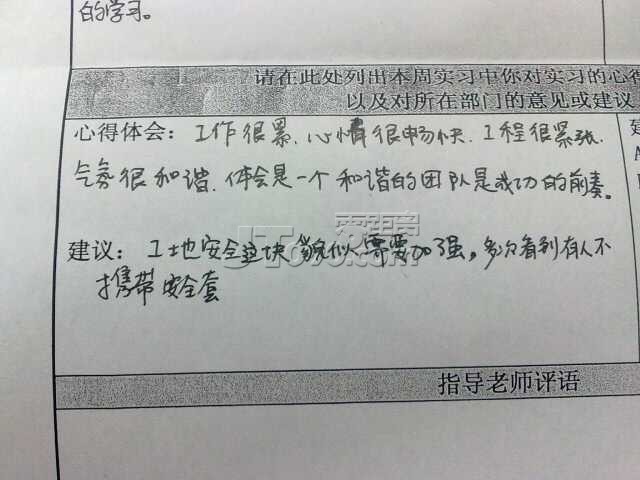 的学习。
请在此处列出本周实习中你对实习的心得
以及对所在部门的意见或建议
心得体会：工作很累、心情很畅快、工程很紧张、
气氛很和谐、体会是一个和谐的团队是成功的前奏。
建议：工地安全这块貌似需要加强，多次看到有人不
携带安全套
指导老师评语